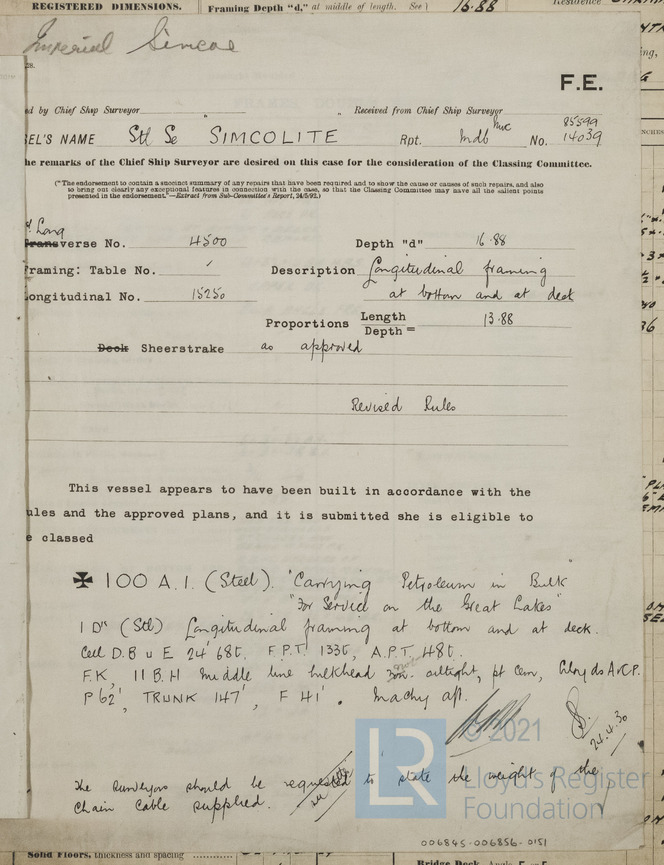 REGISTERED DIMENSIONS. Framing Depth "d," at middle of length. See 16.88
Imperial Simcoe
28.
F.E.
ed by Chief Ship Surveyor Received from Chief Ship Surveyor
EL'S NAME Stl Sc SIMCOLITE Rpt. Mdb No. 85599
14039
he remarks of the Chief Ship Surveyor are desired on this case for the consideration of the Classing Committee.
("The endorsement to contain a succinct summary of any repairs that have been required and to show the cause or causes of such repairs, and also
so bring out clearly any exceptional features in connection with the case, so that the Classing Committee may have all the salient points
presented in the endorsement."—Extract from Sub-Committee's Report, 24/5/92.)
Long
Transverse No. 4500 Depth "d" 16.88
raming: Table No. Description Longitudinal framing
ongitudinal No. 15250 at bottom and at deck
Proportions Length
Depth = 13.88
Deck Sheerstrake as approved
Revised Rules
This vessel appears to have been built in accordance with the
ules and the approved plans, and it is submitted she is eligible to
e classed
✠ 100 A.1. (Steel). "Carrying Petroleum in Bulk"
"For Service on the Great Lakes"
1 Dk (Stl) Longitudinal framing at bottom and at deck.
Cell D.B u E 24' 68t. F.P.T. 133t, A.P.T. 48t.
F.K, 11 B.H Middle line bulkhead not oiltight, pt Cem, Lloyds A&CP.
P 62', TRUNK 147', F 41'. Machy aft.
24.4.30
The Surveyors should be requested to state the weight of the
Chain Cable supplied.
© 2021
LR Lloyd's Register
Foundation
006845-006856-0151
Solid Floors, thickness and spacing
Bridge Deck,